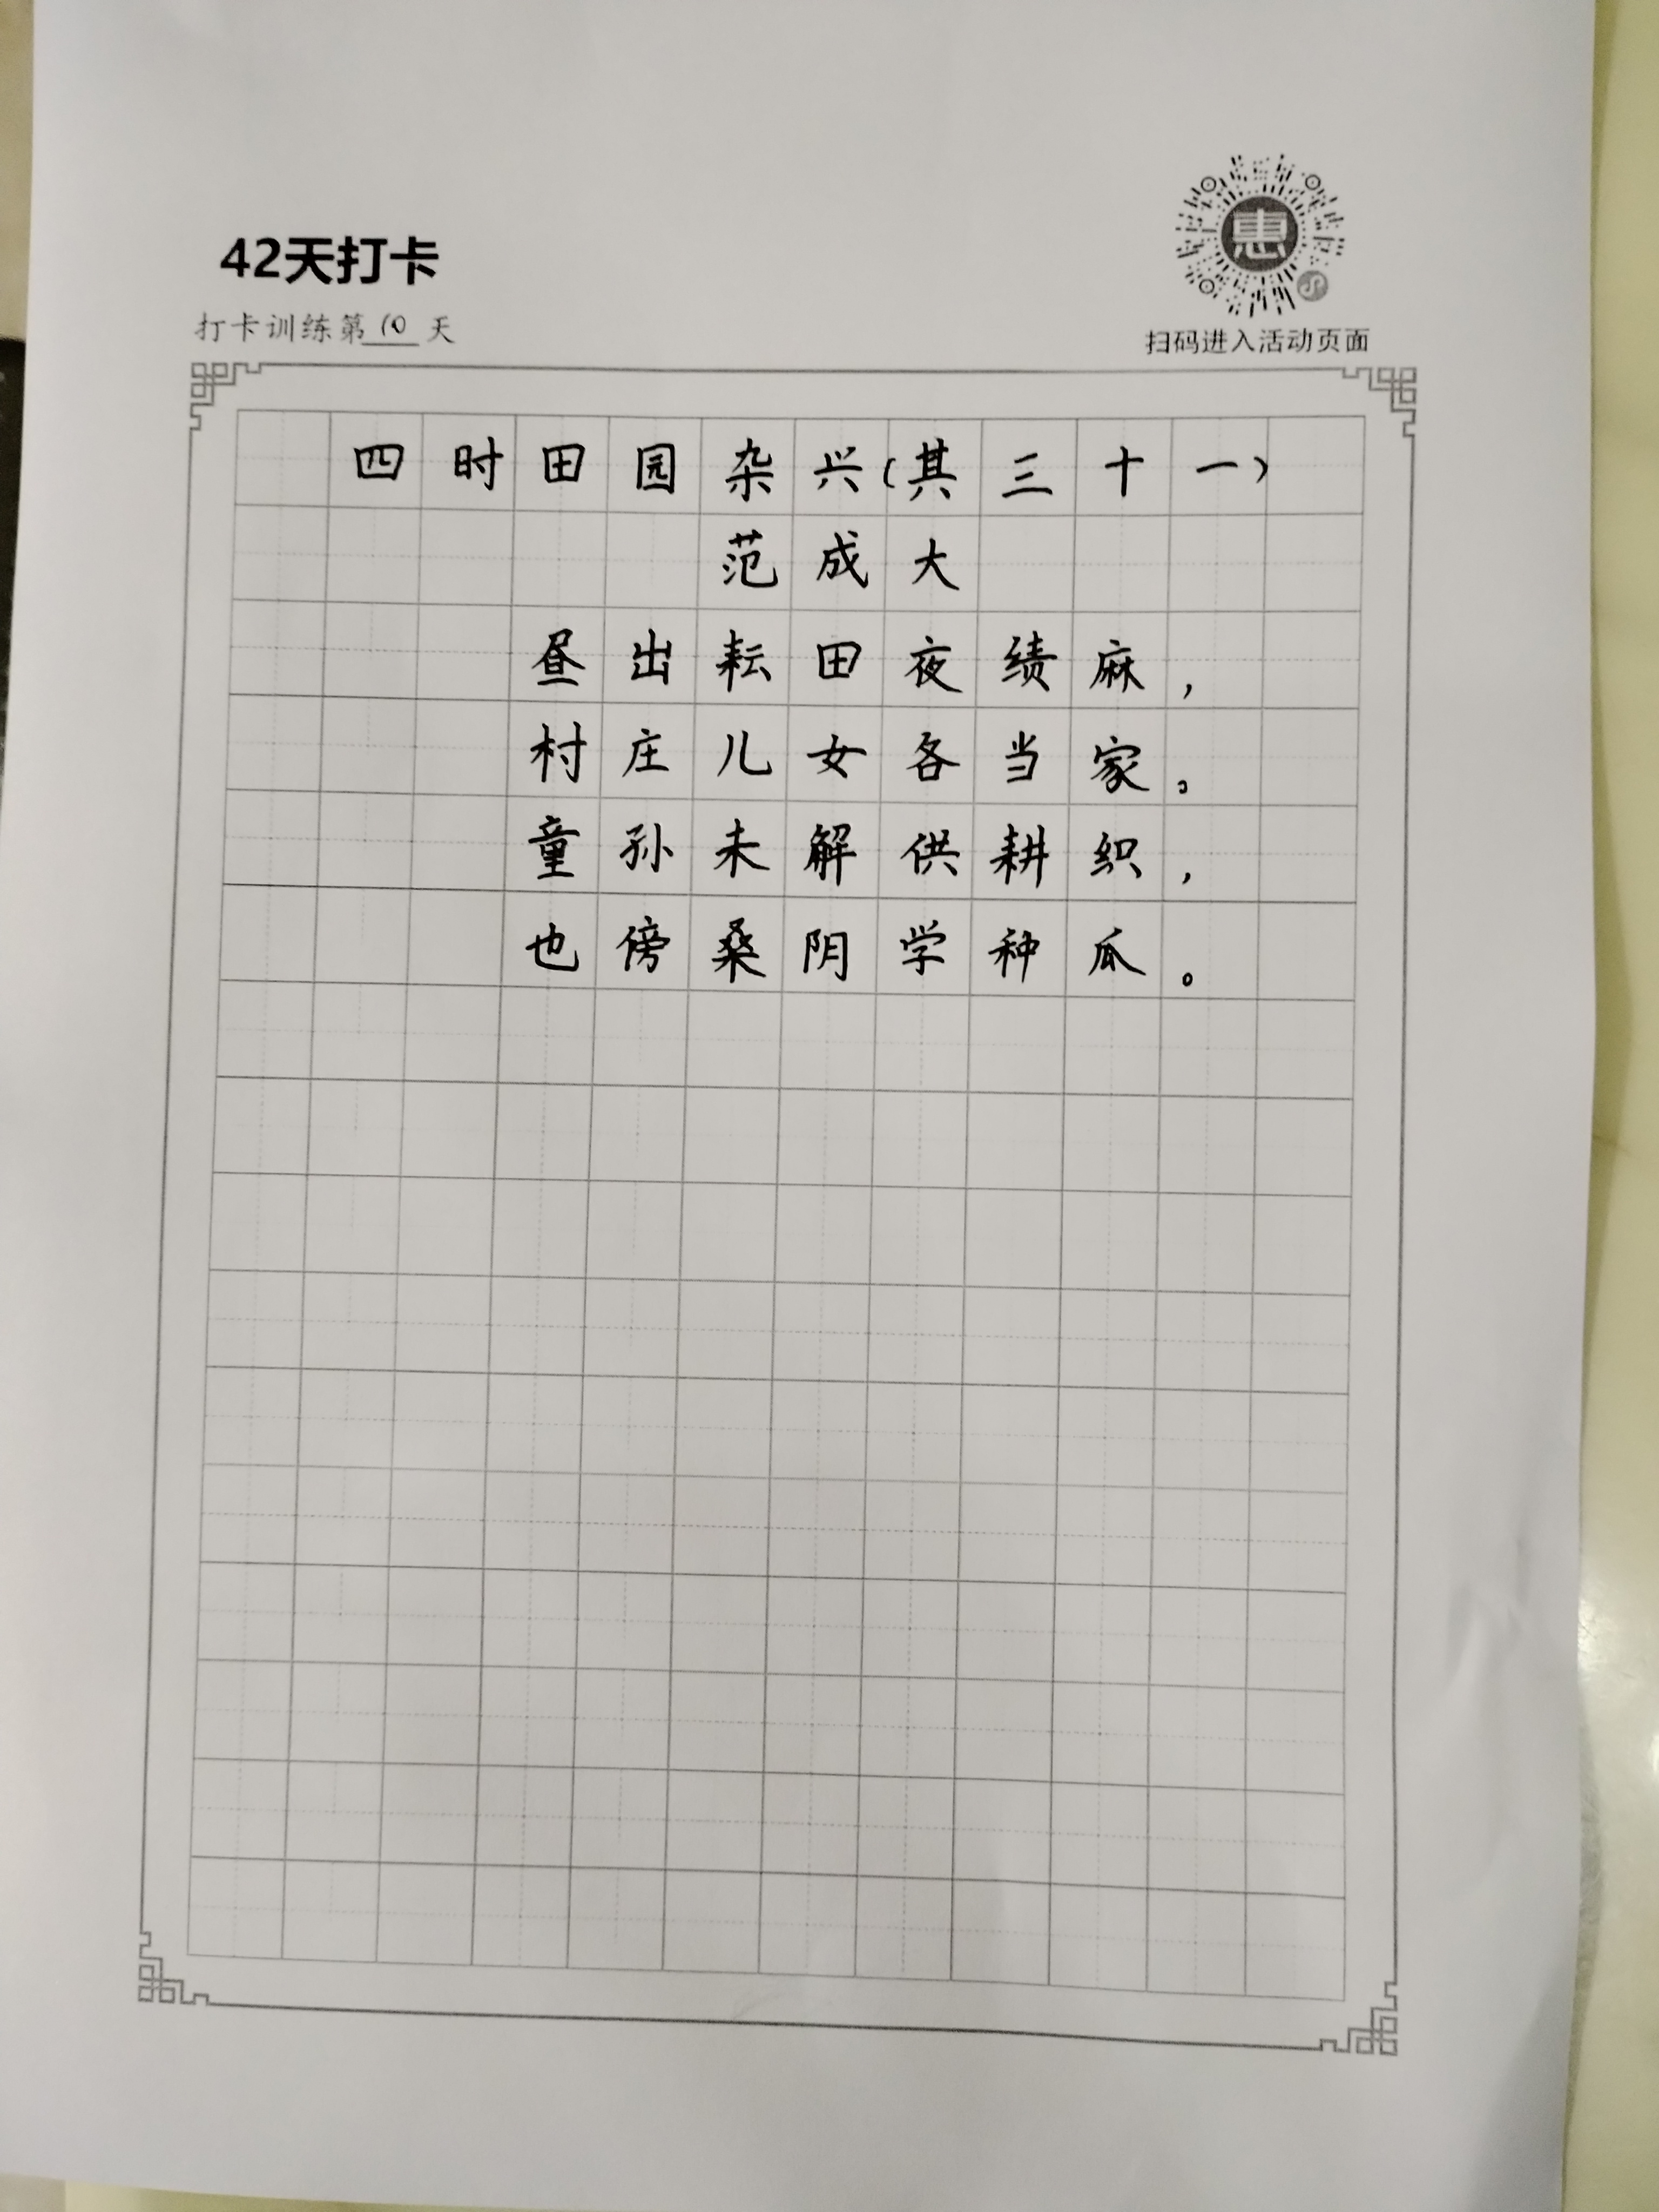 惠
42天打卡
打卡训练第10天
扫码进入活动页面
四时田园杂兴(其三十一)
范成大
昼出耘田夜绩麻，
村庄儿女各当家。
童孙未解供耕织，
也傍桑阴学种瓜。